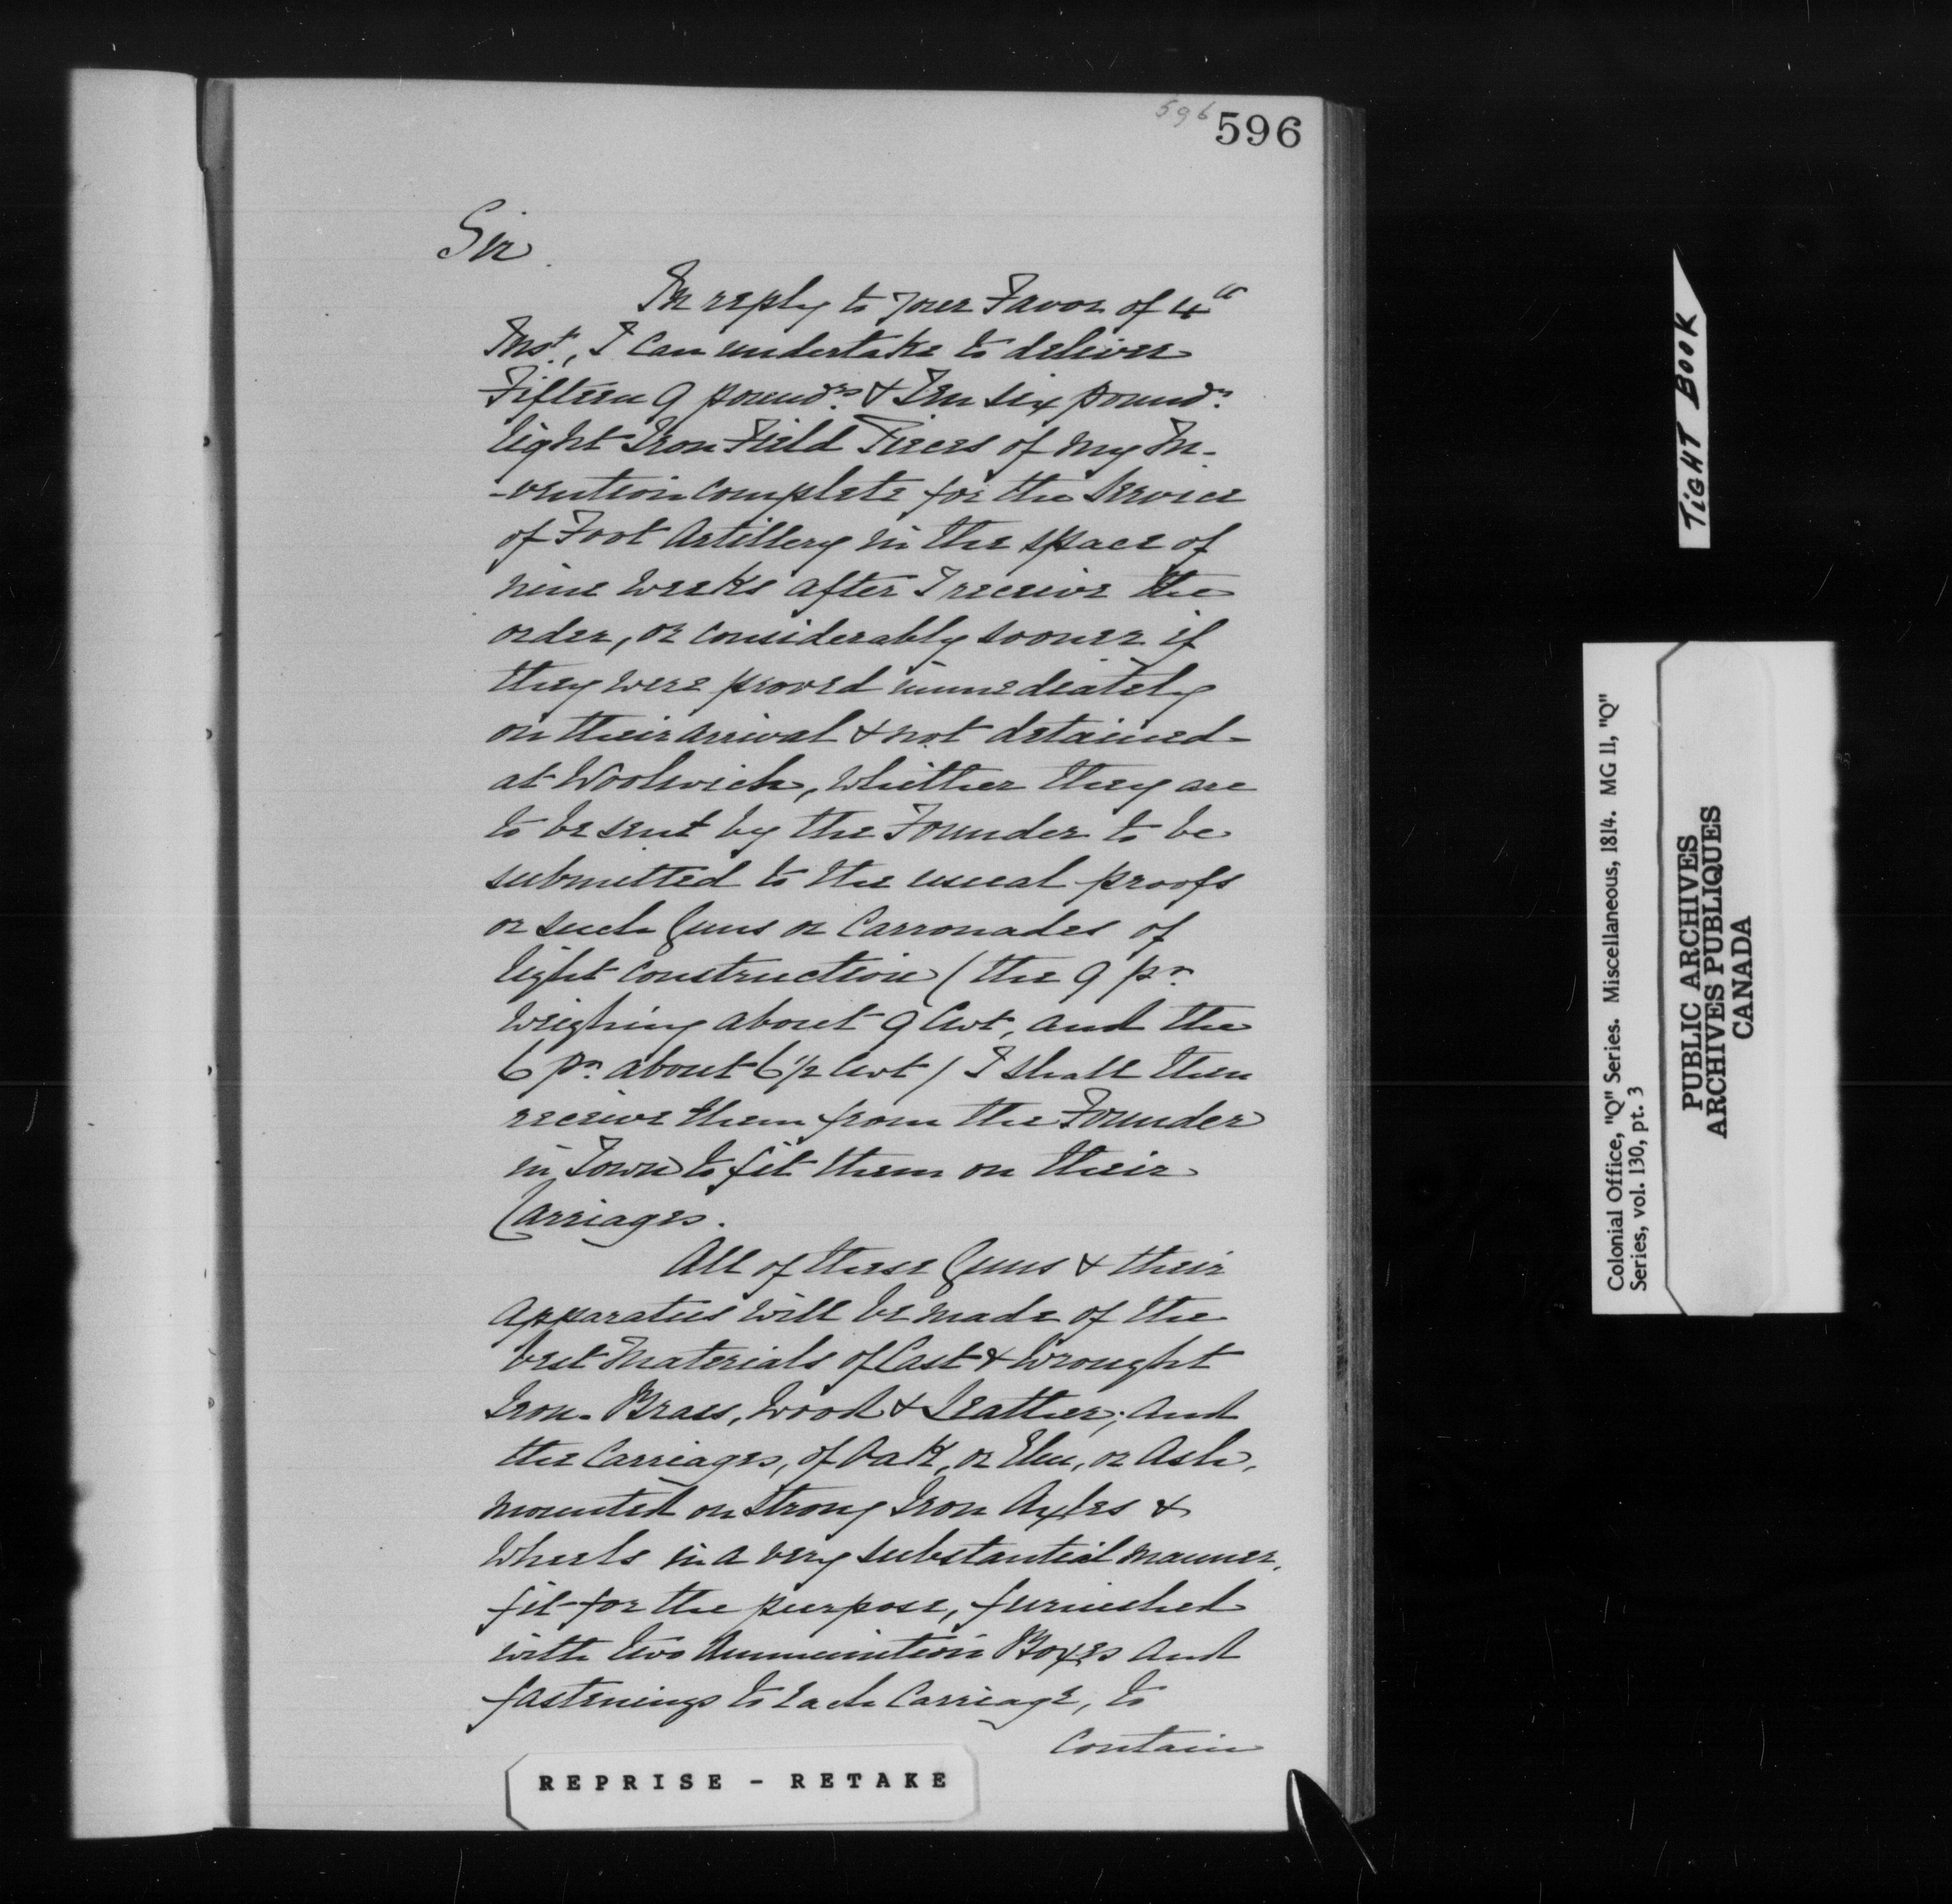 596 596
Sir.
In reply to your Favor of 4th
Inst., I can undertake to deliver
Fifteen 9 pounds & Ten six pounds
light Iron Field Pieces of my In-
-vention complete for the Service
of Foot Artillery in the space of
nine weeks after I receive the
order, or considerably sooner if
they were proved immediately
on their arrival & not detained
at Woolwich, whither they are
to be sent by the Founder to be
submitted to the usual proofs
or such Guns or Carronades of
light construction (the 9 pr
weighing about 9 Cwt, and the
6 pr about 6 1/2 Cwt) I shall then
receive them from the Founder
in Town to fit them on their
Carriages.
All of these Guns & their
Apparatus will be made of the
best Materials of Cast & Wrought
Iron. Brass, Wood & Leather; and
the Carriages, of Oak, or Elm, or Ash,
mounted on strong Iron Axles &
Wheels in a very substantial manner,
fit for the purpose, furnished
with two Ammunition Boxes and
fastenings to each Carriage, to
Contain
REPRISE - RETAKE
TIGHT BOOK
Colonial Office, "Q" Series. Miscellaneous, 1814. MG 11, "Q"
Series, vol. 130, pt. 3
PUBLIC ARCHIVES
ARCHIVES PUBLIQUES
CANADA